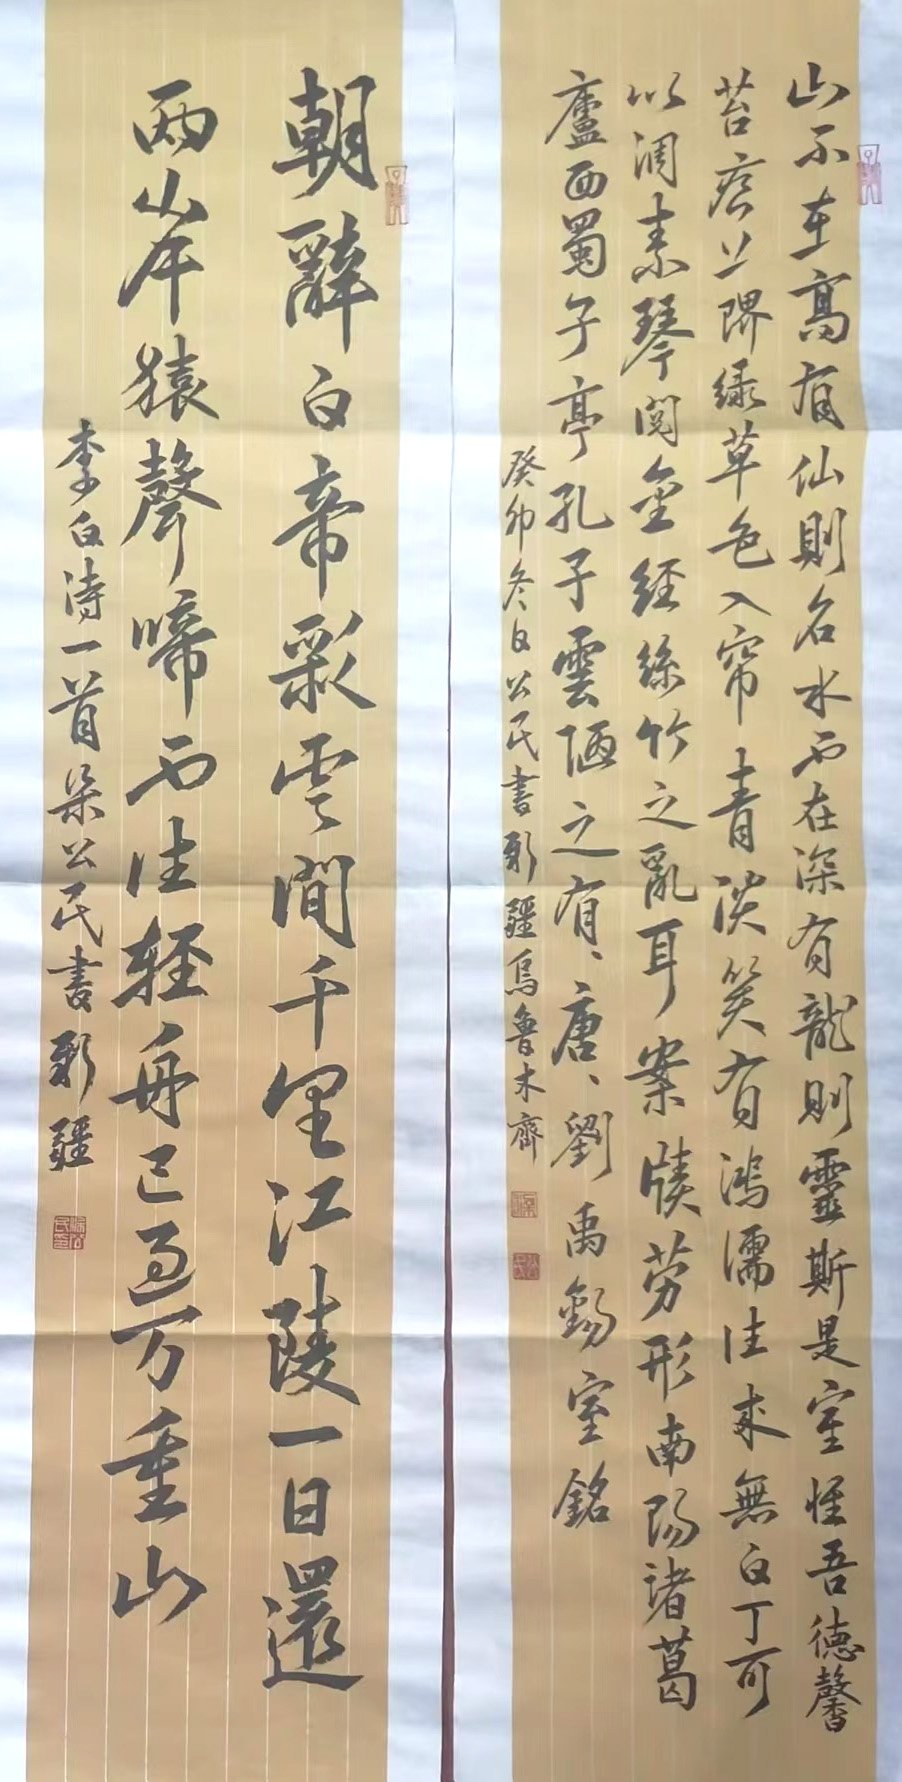 山不在高有仙則名水不在深有龍則靈斯是室惟吾德馨
苔痕上階綠草色入帘青談笑有鴻儒往來無白丁可
以調素琴閱金經絲竹之亂耳案牘勞形南陽諸葛
廬西蜀子亭孔子雲陋之有、唐、劉禹錫室銘
癸卯冬日公民書新疆烏魯木齊
朝辭白帝彩雲間千里江陵一日還
兩岸猿聲啼不住輕舟已過万重山
李白詩一首梁公民書新疆